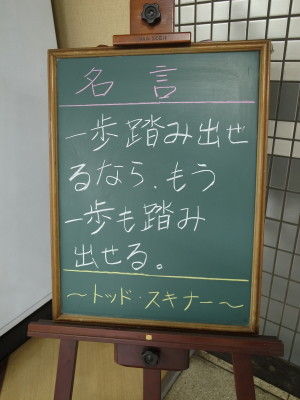 名言
一歩踏み出せ
るなら、もう
一歩も踏み
出せる。
～トッド・スキナー～